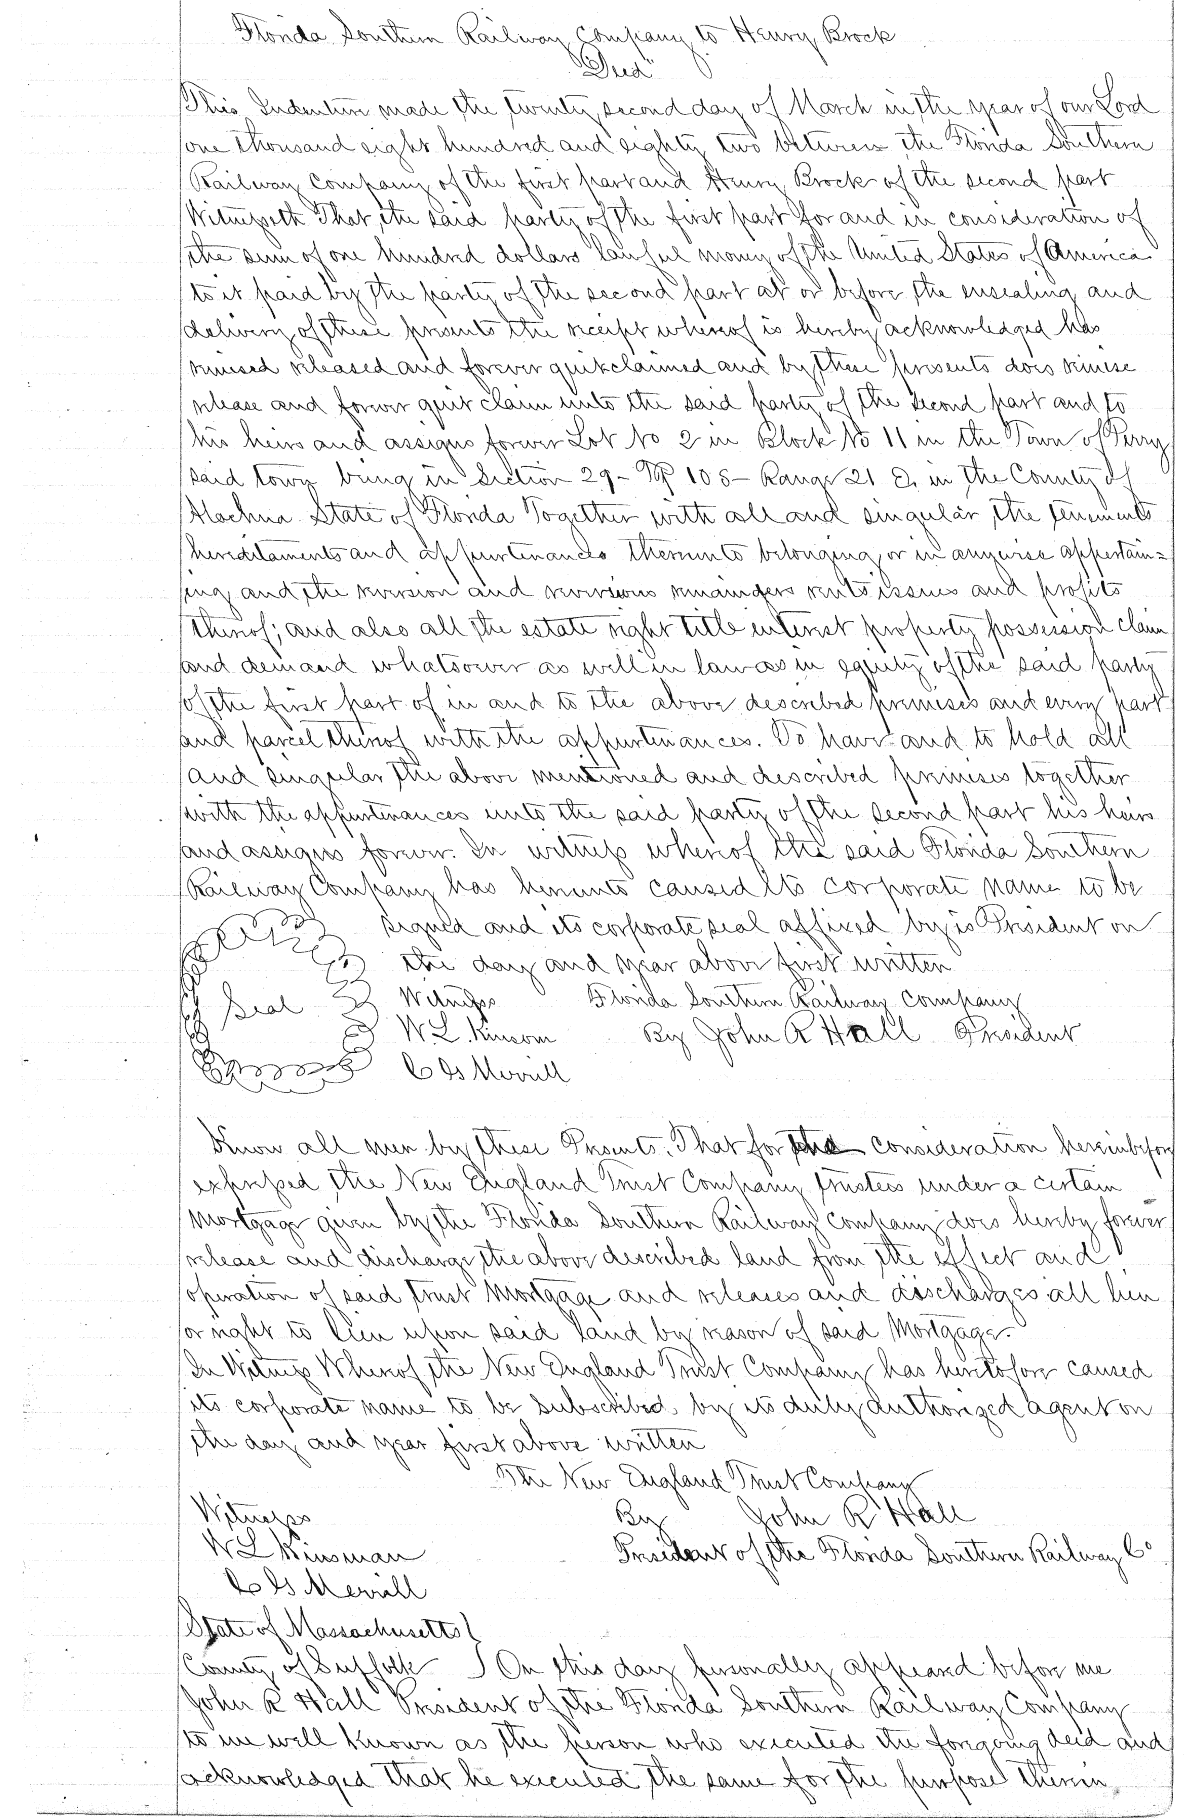 Florida Southern Railway Company to Henry Brock
"Deed"
This Indenture made the twenty second day of March in the year of our Lord
one thousand eight hundred and eighty two between the Florida Southern
Railway Company of the first part and Henry Brock of the second part
Witnesseth That, the said party of the first part for and in consideration of
the sum of one hundred dollars lawful money of the United States of America
to it paid by the party of the second part at or before the ensealing and
delivery of these presents the receipt whereof is hereby acknowledged has
remised released and forever quitclaimed and by these presents does remise
release and forever quit claim unto the said party of the second part and to
his heirs and assigns forever Lot No 2 in Block No 11 in the Town of Perry
said town being in Section 29 - Tp 10 S - Range 21 E, in the County of
Alachua State of Florida Together with all and singular, the tenements
hereditaments and appurtenances thereunto belonging or in anywise appertain=
ing and the reversion and reversions remainders rents issues and profits
thereof; and also all the estate right title interest property possession claim
and demand whatsoever as well in law as in equity of the said party
of the first part of in and to the above described premises and every part
and parcel thereof with the appurtenances. To have and to hold all
and singular the above mentioned and described premises together
with the appurtenances unto the said party of the second part his heirs
and assigns forever. In witness whereof the said Florida Southern
Railway Company has hereunto caused its corporate name to be
signed and its corporate seal affixed by is President on
the day and year above first written
Seal Witness Florida Southern Railway Company
W. L. Kinsom By John R Hall President
C G Merrill
Know all men by these Presents. That for the consideration hereinbefore
expressed the New England Trust Company trustees under a certain
Mortgage given by the Florida Southern Railway Company does hereby forever
release and discharge the above described land from the effect and
operation of said trust Mortgage and releases and discharges all lien
or right to lien upon said land by reason of said Mortgage.
In Witness Whereof the New England Trust Company has heretofore caused
its corporate name to be subscribed by its duly authorized agent on
the day and year first above written
The New England Trust Company
Witness By John R Hall
W L Kinsman President of the Florida Southern Railway Co
C G Merrill
State of Massachusetts
County of Suffolk On this day personally appeared before me
John R Hall President of the Florida Southern Railway Company
to me well known as the person who executed the foregoing deed and
acknowledged that he executed the same for the purpose therein